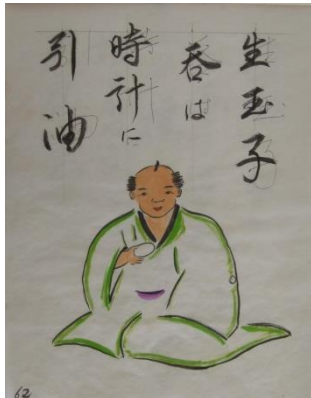 生玉子
呑は
時計に
引油
62